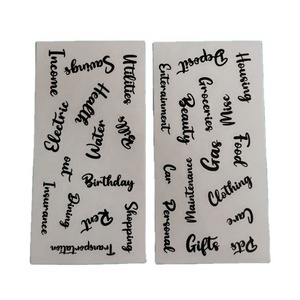 Income
Savings
Utilities
Health
Gifts
Electric
Water
Dining out
Birthday
Insurance
Rent
Shopping
Transportation
Entertainment
Deposit
Housing
Groceries
Misc
Beauty
Gas
Food
Car Maintenance
Clothing
Personal Care
Gifts
Pets